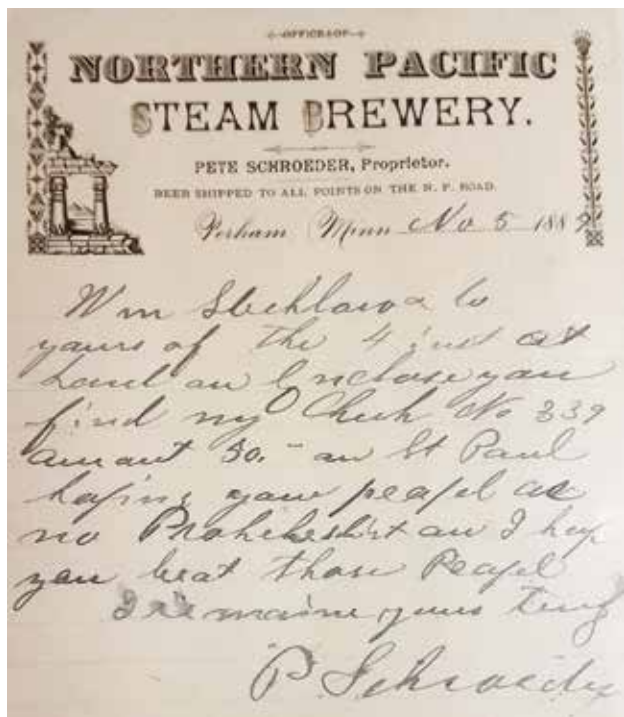 OFFICE OF
NORTHERN PACIFIC
STEAM BREWERY.
PETE SCHROEDER, Proprietor.
BEER SHIPPED TO ALL POINTS ON THE N. P. ROAD.
Perham Minn No 5 1889
Wm & Co
yours of the 4 inst at
hand an Enclose you
find my Check No 339
amount 50.- an St Paul
hoping your peapel ar
no an I hop
you beat those Peapel
I remaine yours
P Schroeder